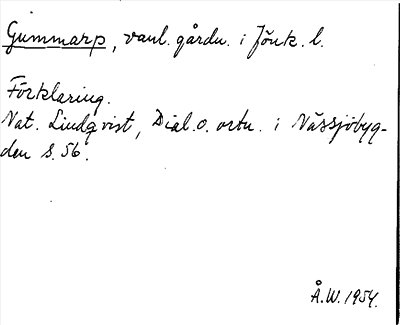 Gummarp, vanl. gårdn. i Jönk. l.
Förklaring.
Nat. Lindqvist, Dial. o. ortn. i Nässjöbyg-
den s. 56.
Å.W. 1954.